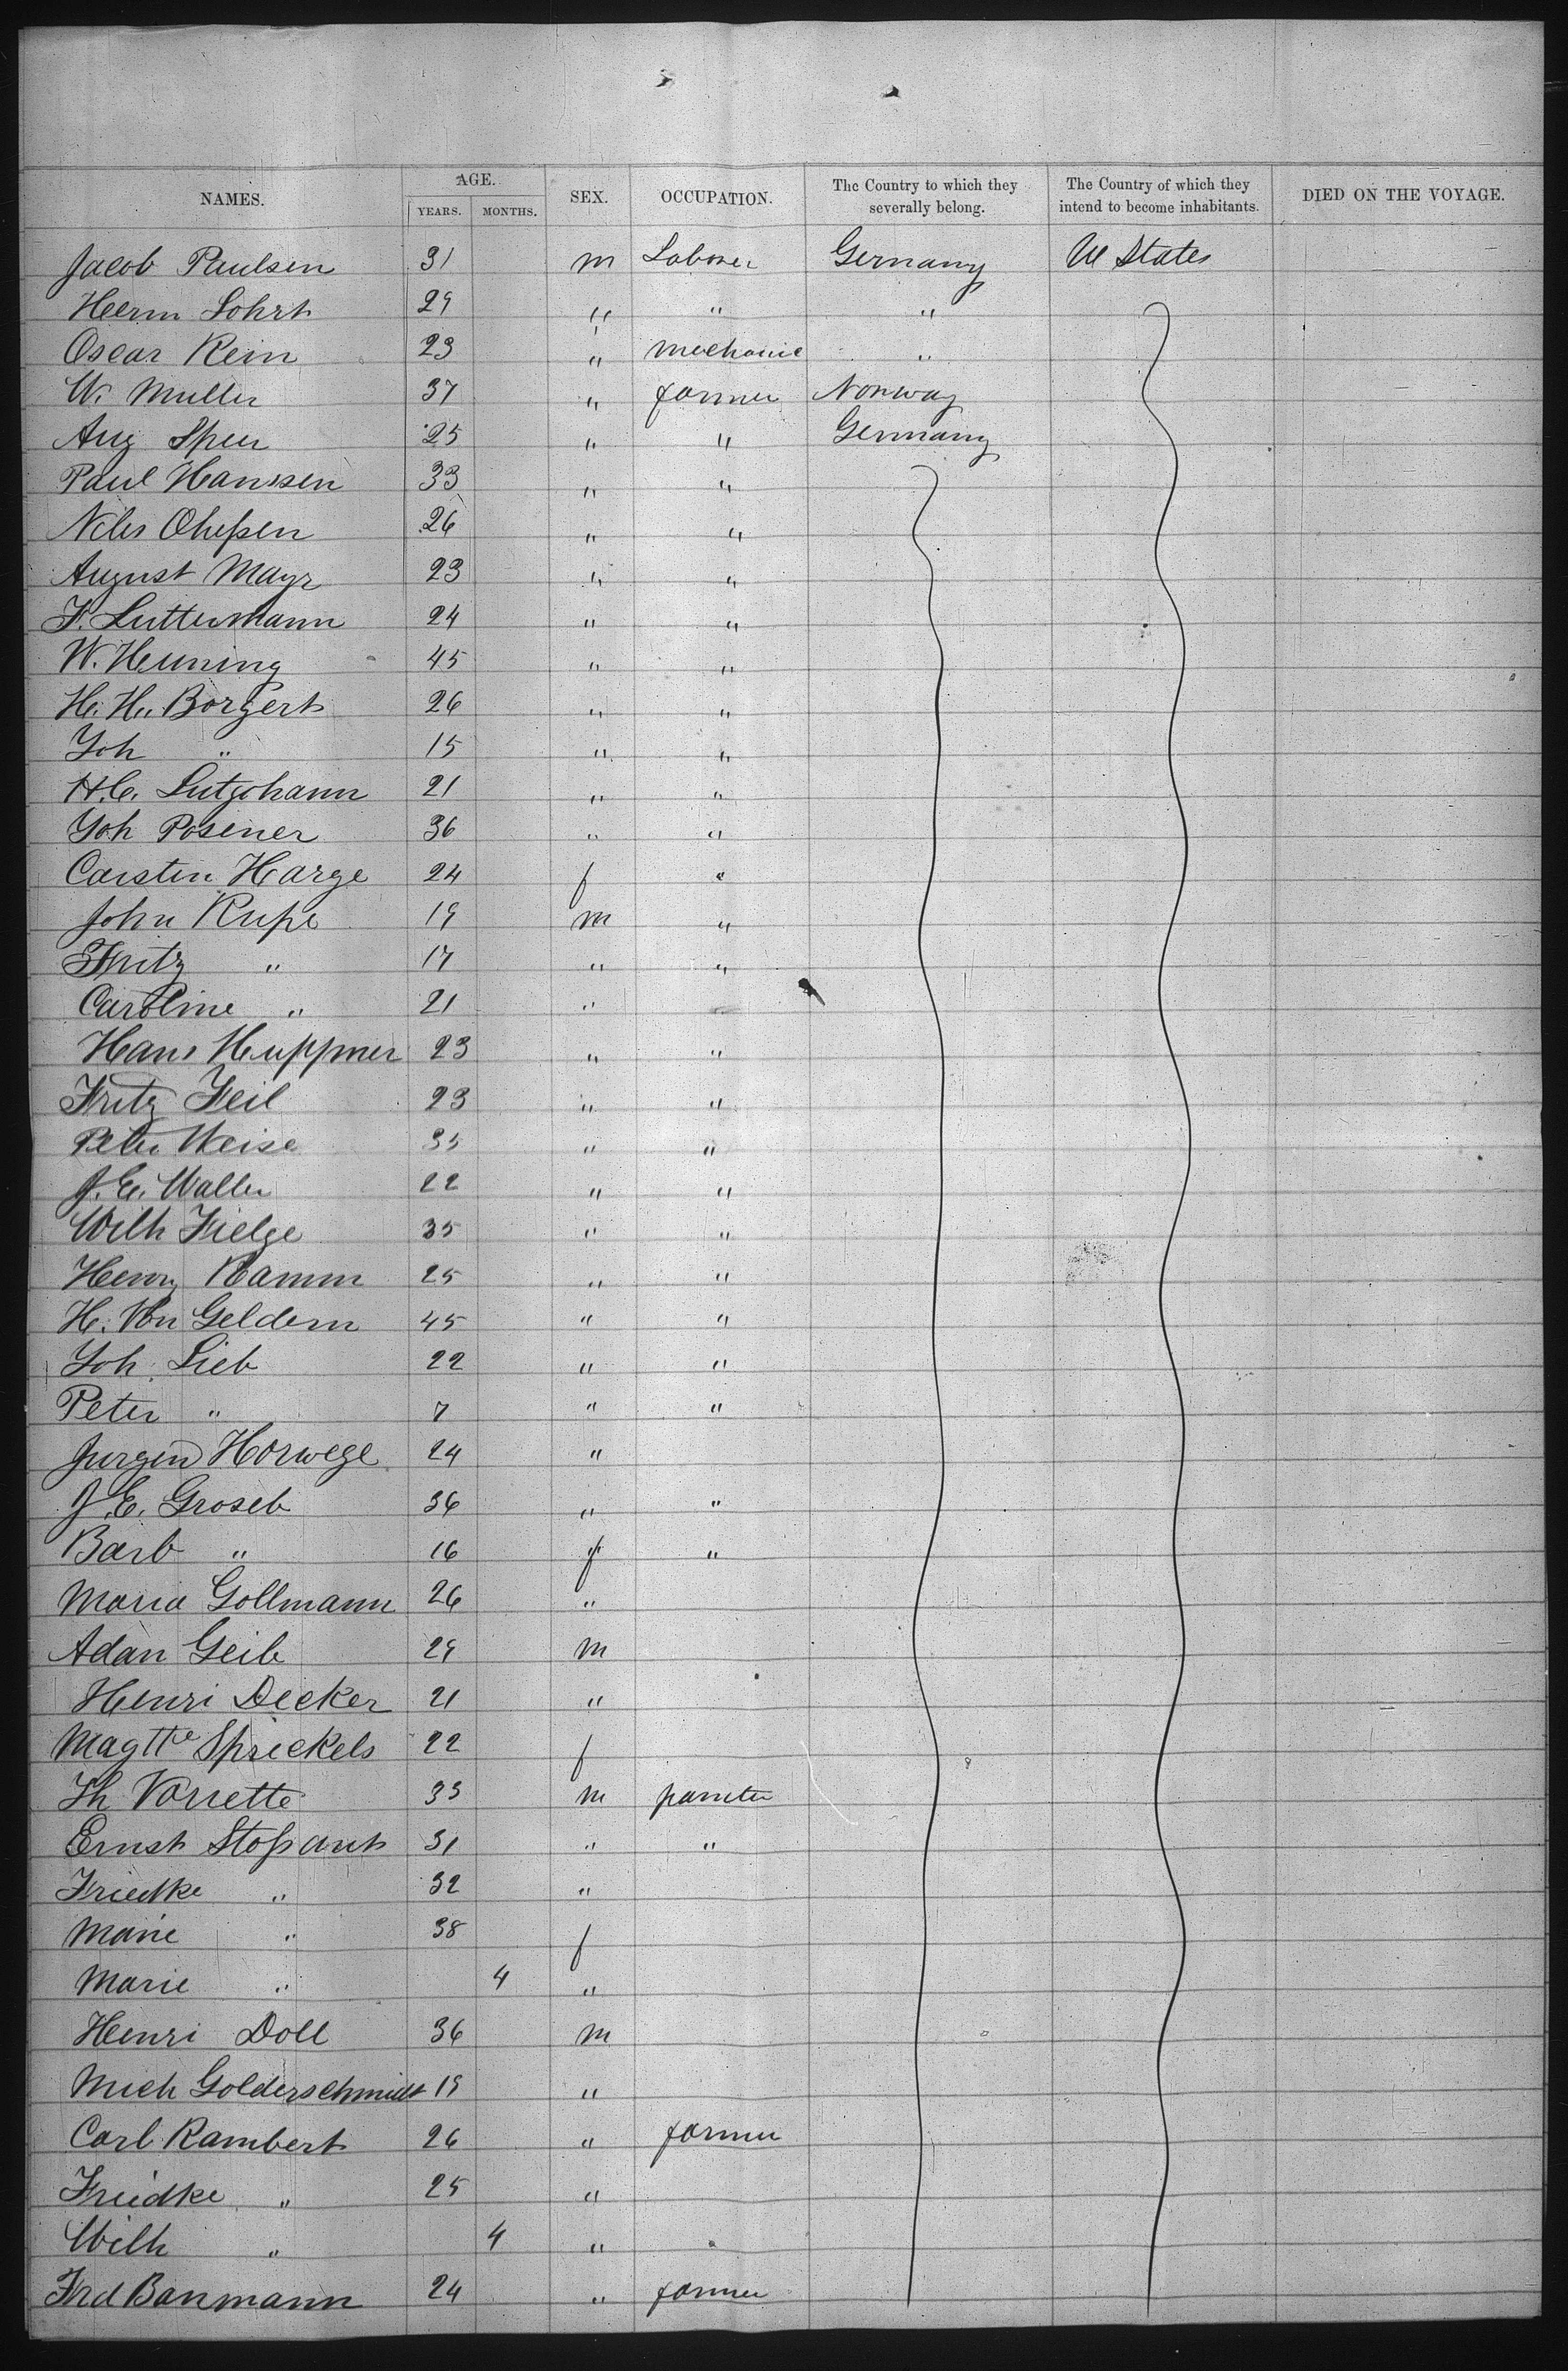 NAMES. AGE. YEARS. MONTHS. SEX. OCCUPATION. The Country to which they severally belong. The Country of which they intend to become inhabitants. DIED ON THE VOYAGE.
Jacob Paulsen 31 m Laborer Germany U States
Herm Lohrt 29 " " "
Oscar Rein 23 " mechanic "
W. Muller 37 " farmer Norway
Aug Speer 25 " " Germany
Paul Hanssen 33 " "
Neles Oleßen 26 " "
August Mayr 23 " "
F. Luttermann 24 " "
W. Henning 45 " "
H. H. Borgert 26 " "
Joh " 15 " "
H.C. Lutzohann 21 " "
Joh Posener 36 " "
Carsten Harge 24 f "
John Rupe 19 m "
Fritz " 17 " "
Caroline " 21 "
Hans Huppmer 23 " "
Fritz Feil 23 " "
Peter Weise 35 " "
J. E. Waller 22 " "
Wilh Fielge 35 " "
Henry Ramm 25 " "
H. Von Geldern 45 " "
Joh. Lieb 22 " "
Peter " 7 " "
Jurgen Horwege 24 "
J. E. Groseb 36 " "
Barb " 16 f "
Maria Gollmann 26 "
Adan Geib 29 m
Henri Decker 21 "
Magtte Spreckels 22 f
Th Vorrette 33 m painter
Ernst Stoßant 31 " "
Friedke " 32 "
Marie " 38 f
Marie " 4 "
Henri Doll 36 m
Mich Golderschmidt 19 "
Carl Rambert 26 " farmer
Friedke " 25 "
Wilh " 4 "
Frd Banmann 24 " farmer